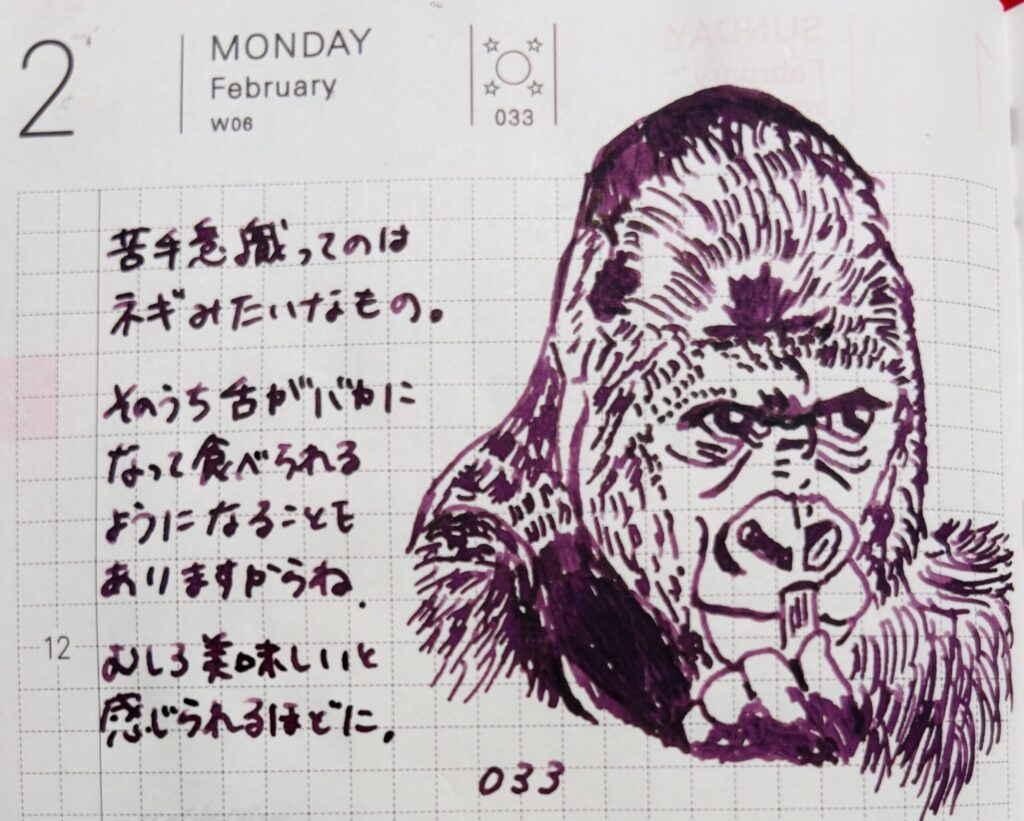 2
MONDAY
February
W06
033
SUNDAY
February
1
苦手意識ってのは
ネギみたいなもの。
そのうち舌がバカに
なって食べられる
ようになることも
ありますからね.
12
むしろ美味しいと
感じられるほどに。
033